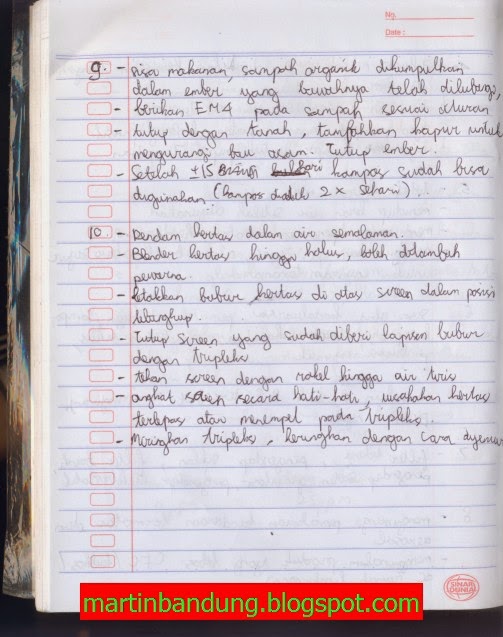 No.
Date :
9. - sisa makanan, sampah organik dikumpulkan
dalam ember yang bawahnya telah dilubangi,
- berikan EM4 pada sampah sesuai aturan
- tutup dengan tanah, tambahkan kapur untuk
mengurangi bau asam. Tutup ember!
- Setelah ±15 hari kompos sudah bisa
digunakan (kompos diaduk 2x sehari).
10 - Rendam kertas dalam air semalaman.
- Blender kertas hingga halus, boleh ditambah
pewarna.
- letakkan bubur kertas di atas screen dalam posisi
telangkup.
- Tutup screen yang sudah diberi lapisan bubur
dengan tripleks
- tekan screen dengan rakel hingga air tiris
- angkat screen secara hati-hati, usahakan kertas
terlepas atau menempel pada tripleks.
- Miringkan tripleks, keringkan dengan cara dijemur
SINAR DUNIA
martinbandung.blogspot.com